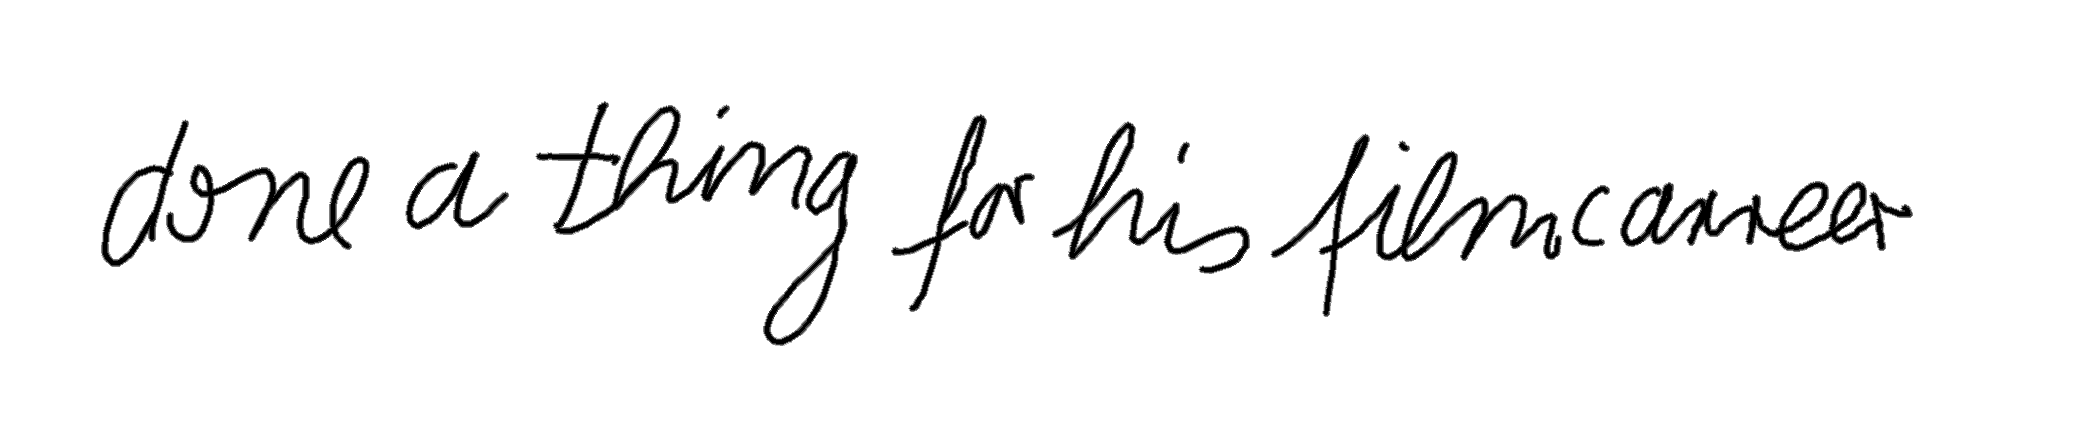 done a thing for his film career